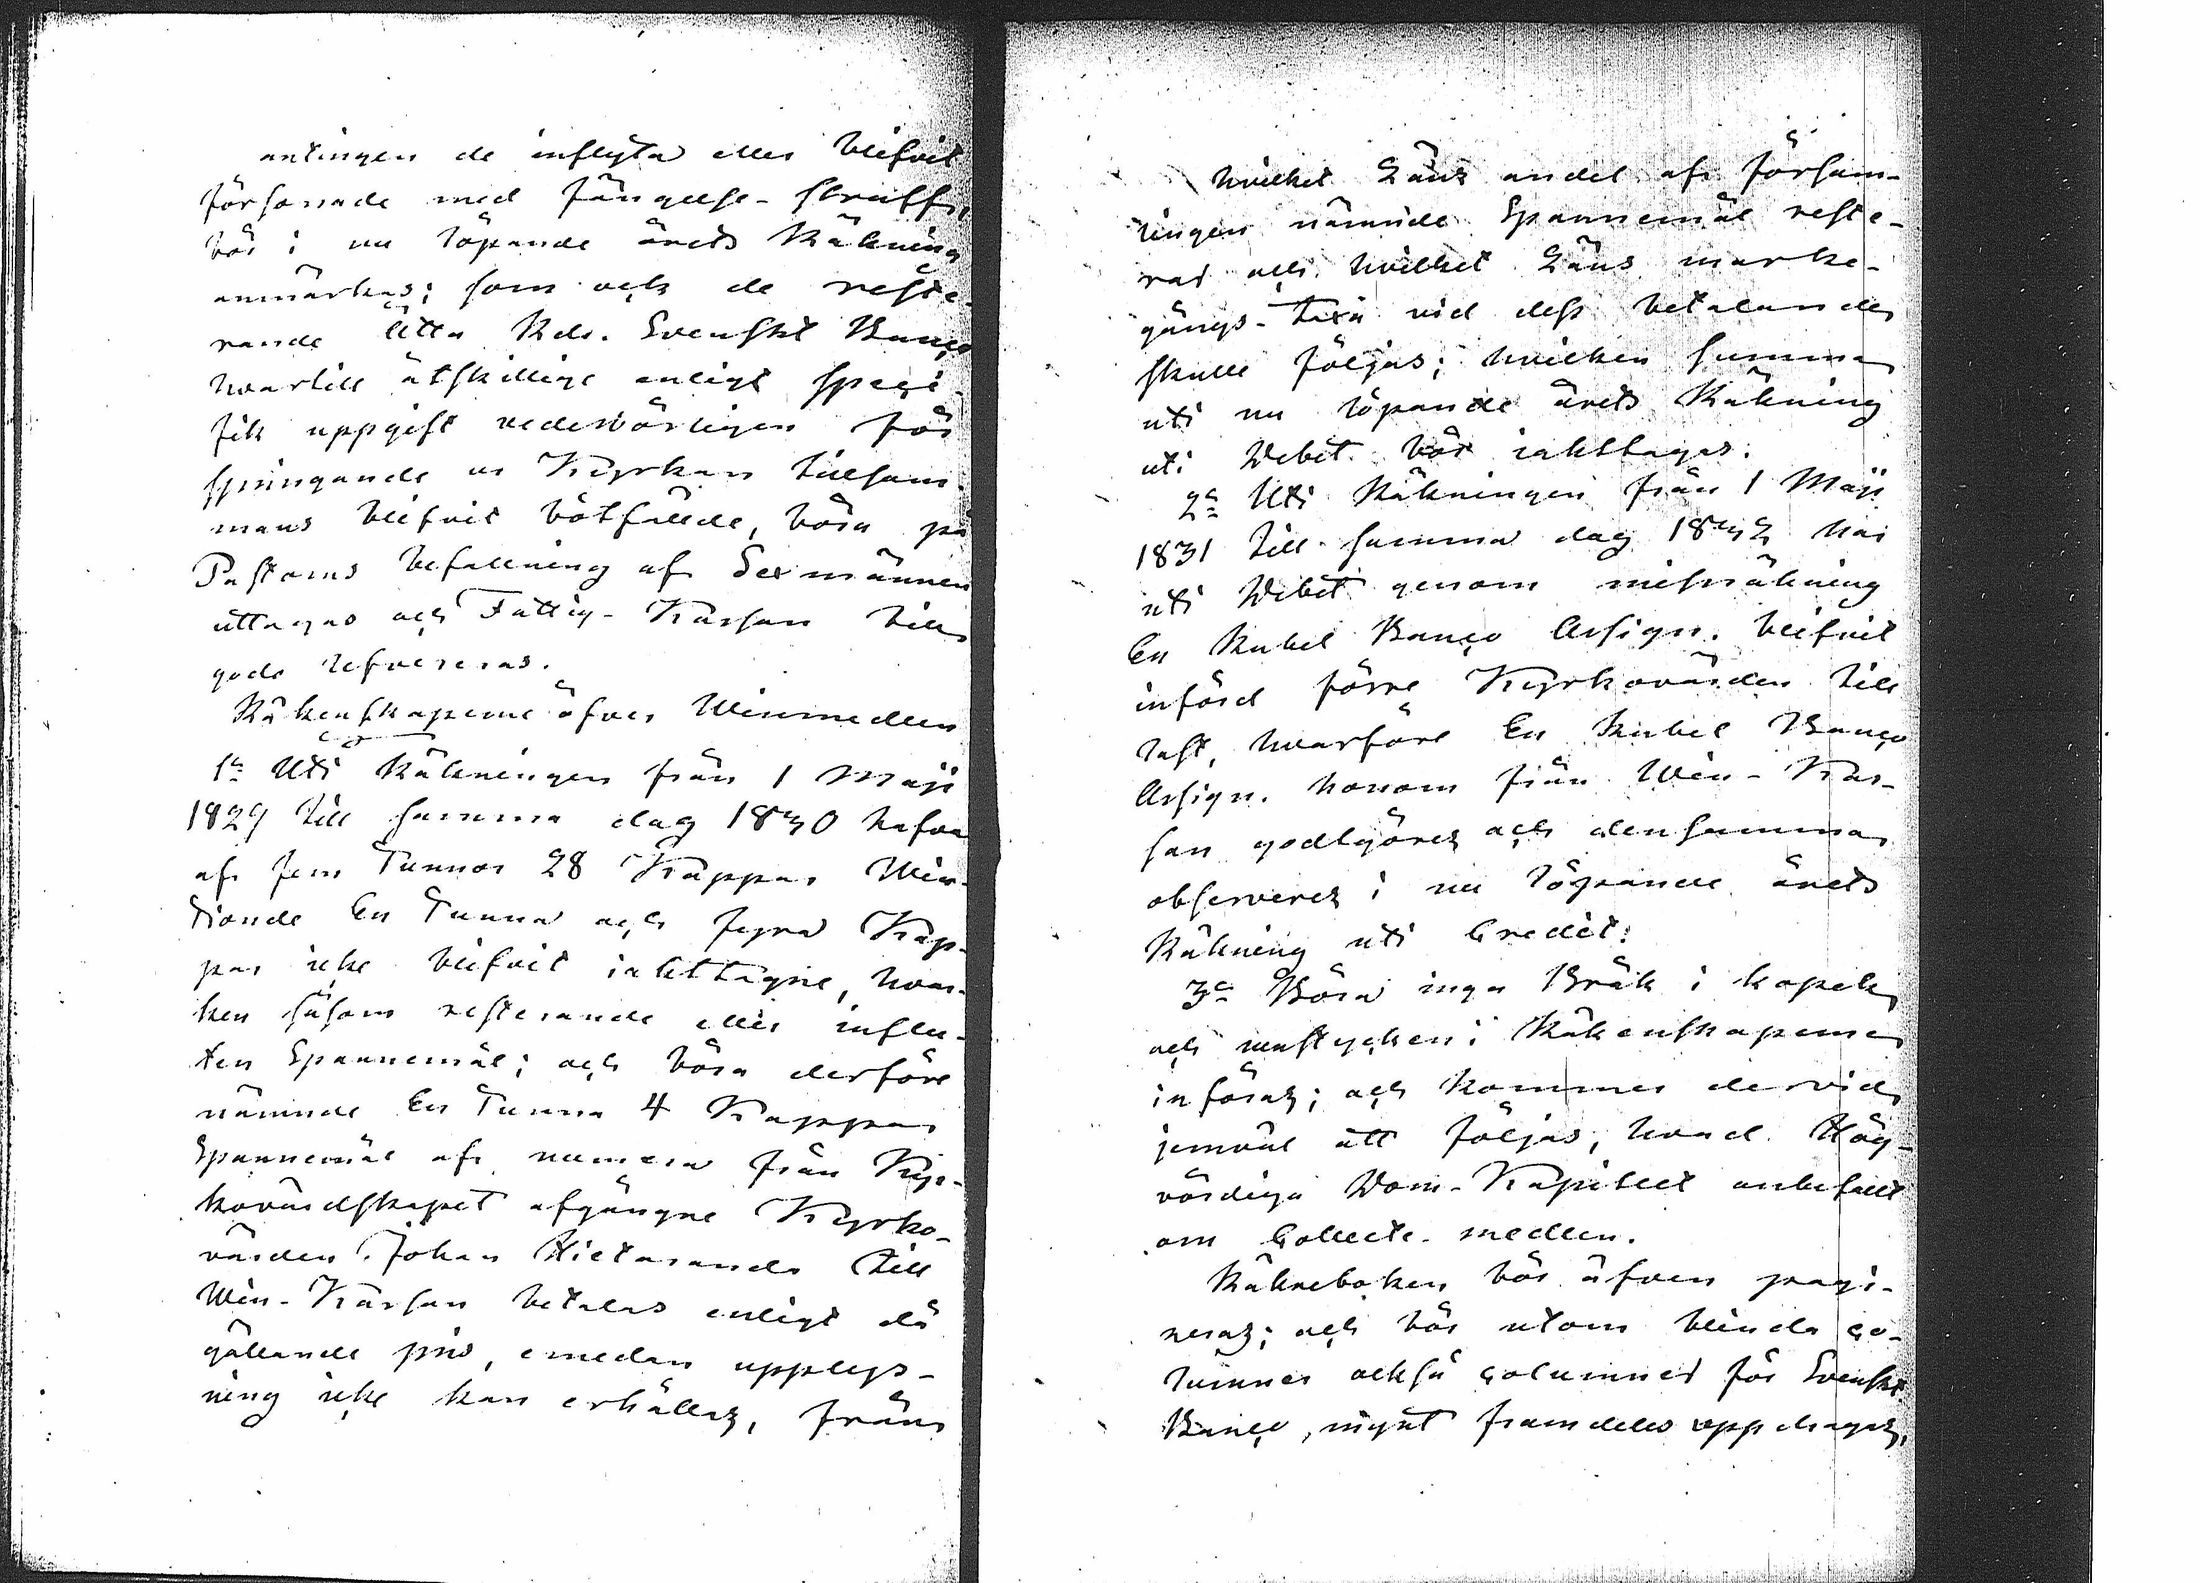 antingen de inflyta eller blifvit
försonade med fängelse-straff,
bör i nu löpande årets Räkning
anmärkas; som ock de reste-
rande åtta Rdr. Svenskt Banco
hvartill åtskillige enligt speci-
fik uppgift vederbörligen för
springande ur Kyrkan tillsam-
mans blifvit bötfällde, böra på
Pastorns befallning af Sexmännen
uttagas och Fattig-Kassan till
godo lefvereras.
Räkenskaperne öfver Winmedlen
1º Uti Räkningen från 1 Maji
1829 till samma dag 1830 hafva
af fem Tunnor 28 Kappar Win-
tionde En Tunna och fyra Kap-
par icke blifvit iakttagne, hvar-
ken såsom resterande eller influ-
ten Spannemål; och böra derföre
nämnde En Tunna 4 Kappar
Spannemål af numera från Kyr-
kovärdskapet afgångne Kyrko-
värden Johan Hietaranda till
Win-Kassan betalas enligt då
gällande pris, emedan upplys-
ning icke kan erhållas, från
hvilket Läns andel af Försam-
lingen nämnde Spannemål reste-
rat och hvilket Läns marke-
gångs-taxa vid dess betalande
skulle följas; hvilken summa
uti nu löpande årets Räkning
uti Debet bör iakttagas.
2º Uti Räkningen från 1 Maji
1831 till samma dag 1832 har
uti Debet genom missräkning
En Rubel Banco Assign. blifvit
införd förre Kyrkovärden till
last, hvarföre En Rubel Banco
Assign. honom från Win-Kas-
san godtgöres och densamma
observeres i nu löpande årets
Räkning uti Credit.
3º Böra inga Bråk i kopek
och runstycken i Räkenskaperne
införas; och kommer dervid
jemväl att följas, hvad Hög-
värdiga Dom-Kapitlet anbefallt
om Collecte-medlen.
Räkneboken bör äfven pagi-
neras; och bör utom blinda co-
lumner också columner för Svenskt
Banco, mynt framdeles uppdragas,